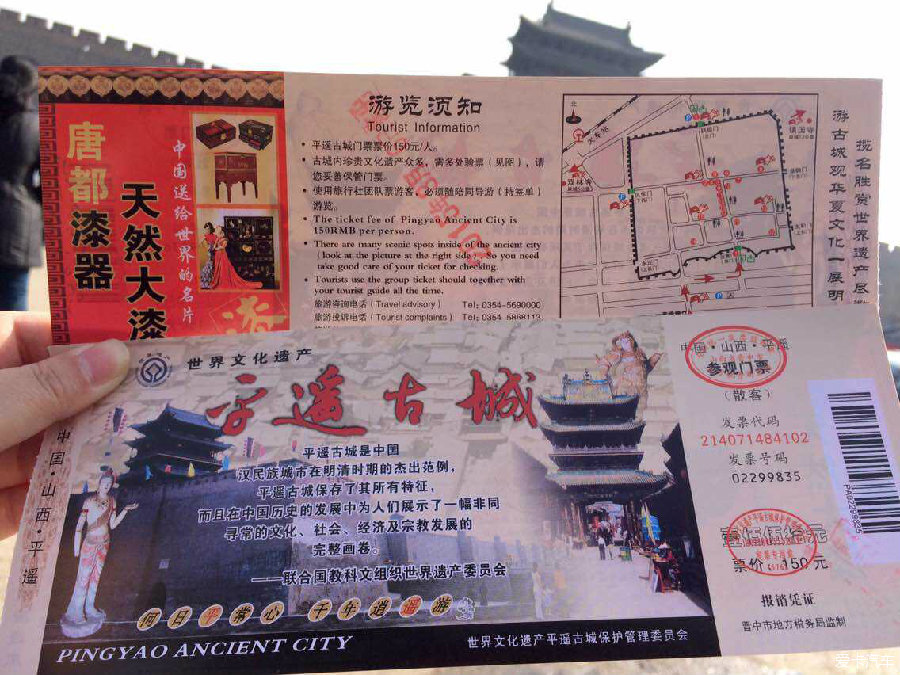 唐都漆器
天然大漆
中国送给世界的名片
游览须知
Tourist Information
• 平遥古城门票票价150元/人。
• 古城内珍贵文化遗产众多，需多处验票（见图），请
您妥善保管门票。
• 使用旅行社团队票游客，必须随陪同导游（持签单）
游览。
• The ticket fee of Pingyao Ancient City is
150RMB per person.
• There are many scenic spots inside of the ancient city
(look at the picture at the right side). So you need
take good care of your ticket for checking.
• Tourists use the group ticket should together with
your tourist guide all the time.
旅游咨询电话（Travel advisory） Tel: 0354-5690000
旅游投诉电话（Tourist complaints） Tel: 0354-5868113
北
游古城观华夏文化一展明
揽名胜赏世界遗产尽
世界文化遗产
平遥古城
中国·山西·平遥
平遥古城是中国
汉民族城市在明清时期的杰出范例，
平遥古城保存了其所有特征，
而且在中国历史的发展中为人们展示了一幅非同
寻常的文化、社会、经济及宗教发展的
完整画卷。
——联合国教科文组织世界遗产委员会
何日平常心 千年逍遥游
PINGYAO ANCIENT CITY
世界文化遗产平遥古城保护管理委员会
中国·山西·平遥
参观门票
（散客）
发票代码
214071484102
发票号码
02299835
壹佰伍拾元
票价：150元
报销凭证
晋中市地方税务局监制
爱卡汽车